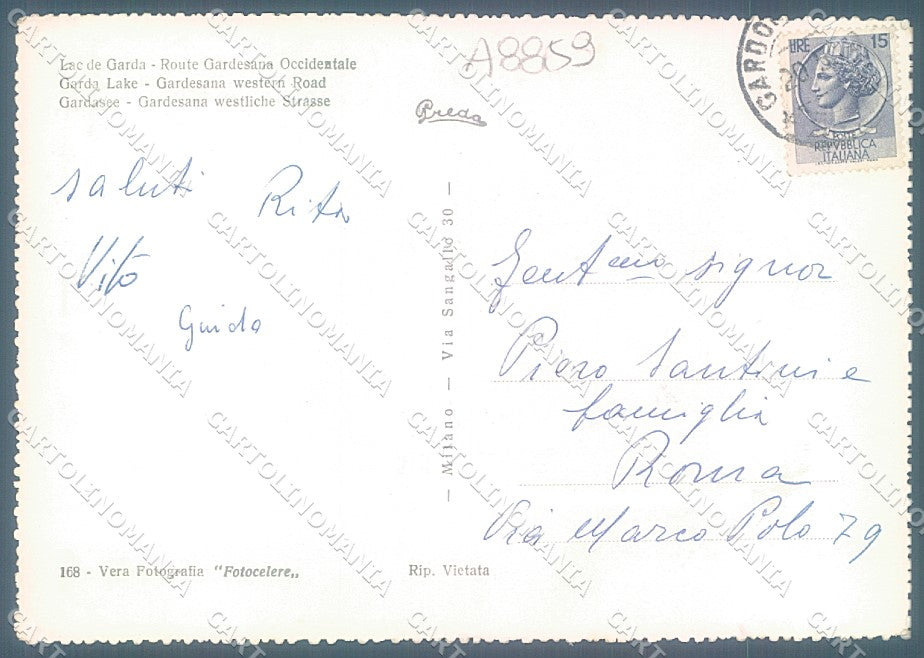 A8859
Lac de Garda - Route Gardesana Occidentale
Garda Lake - Gardesana western Road
Gardasee - Gardesana westliche Strasse
Breda
LIRE 15
REPVBBLICA
ITALIANA
GARDO
20
saluti Rita
Vito
Guido
— Milano — Via Sangallo 30 —
Gent.mo signor
Piero Santini e
famiglia
Roma
Via Marco Polo 79
168 - Vera Fotografia "Fotocelere„
Rip. Vietata
CARTOLINOMANIA